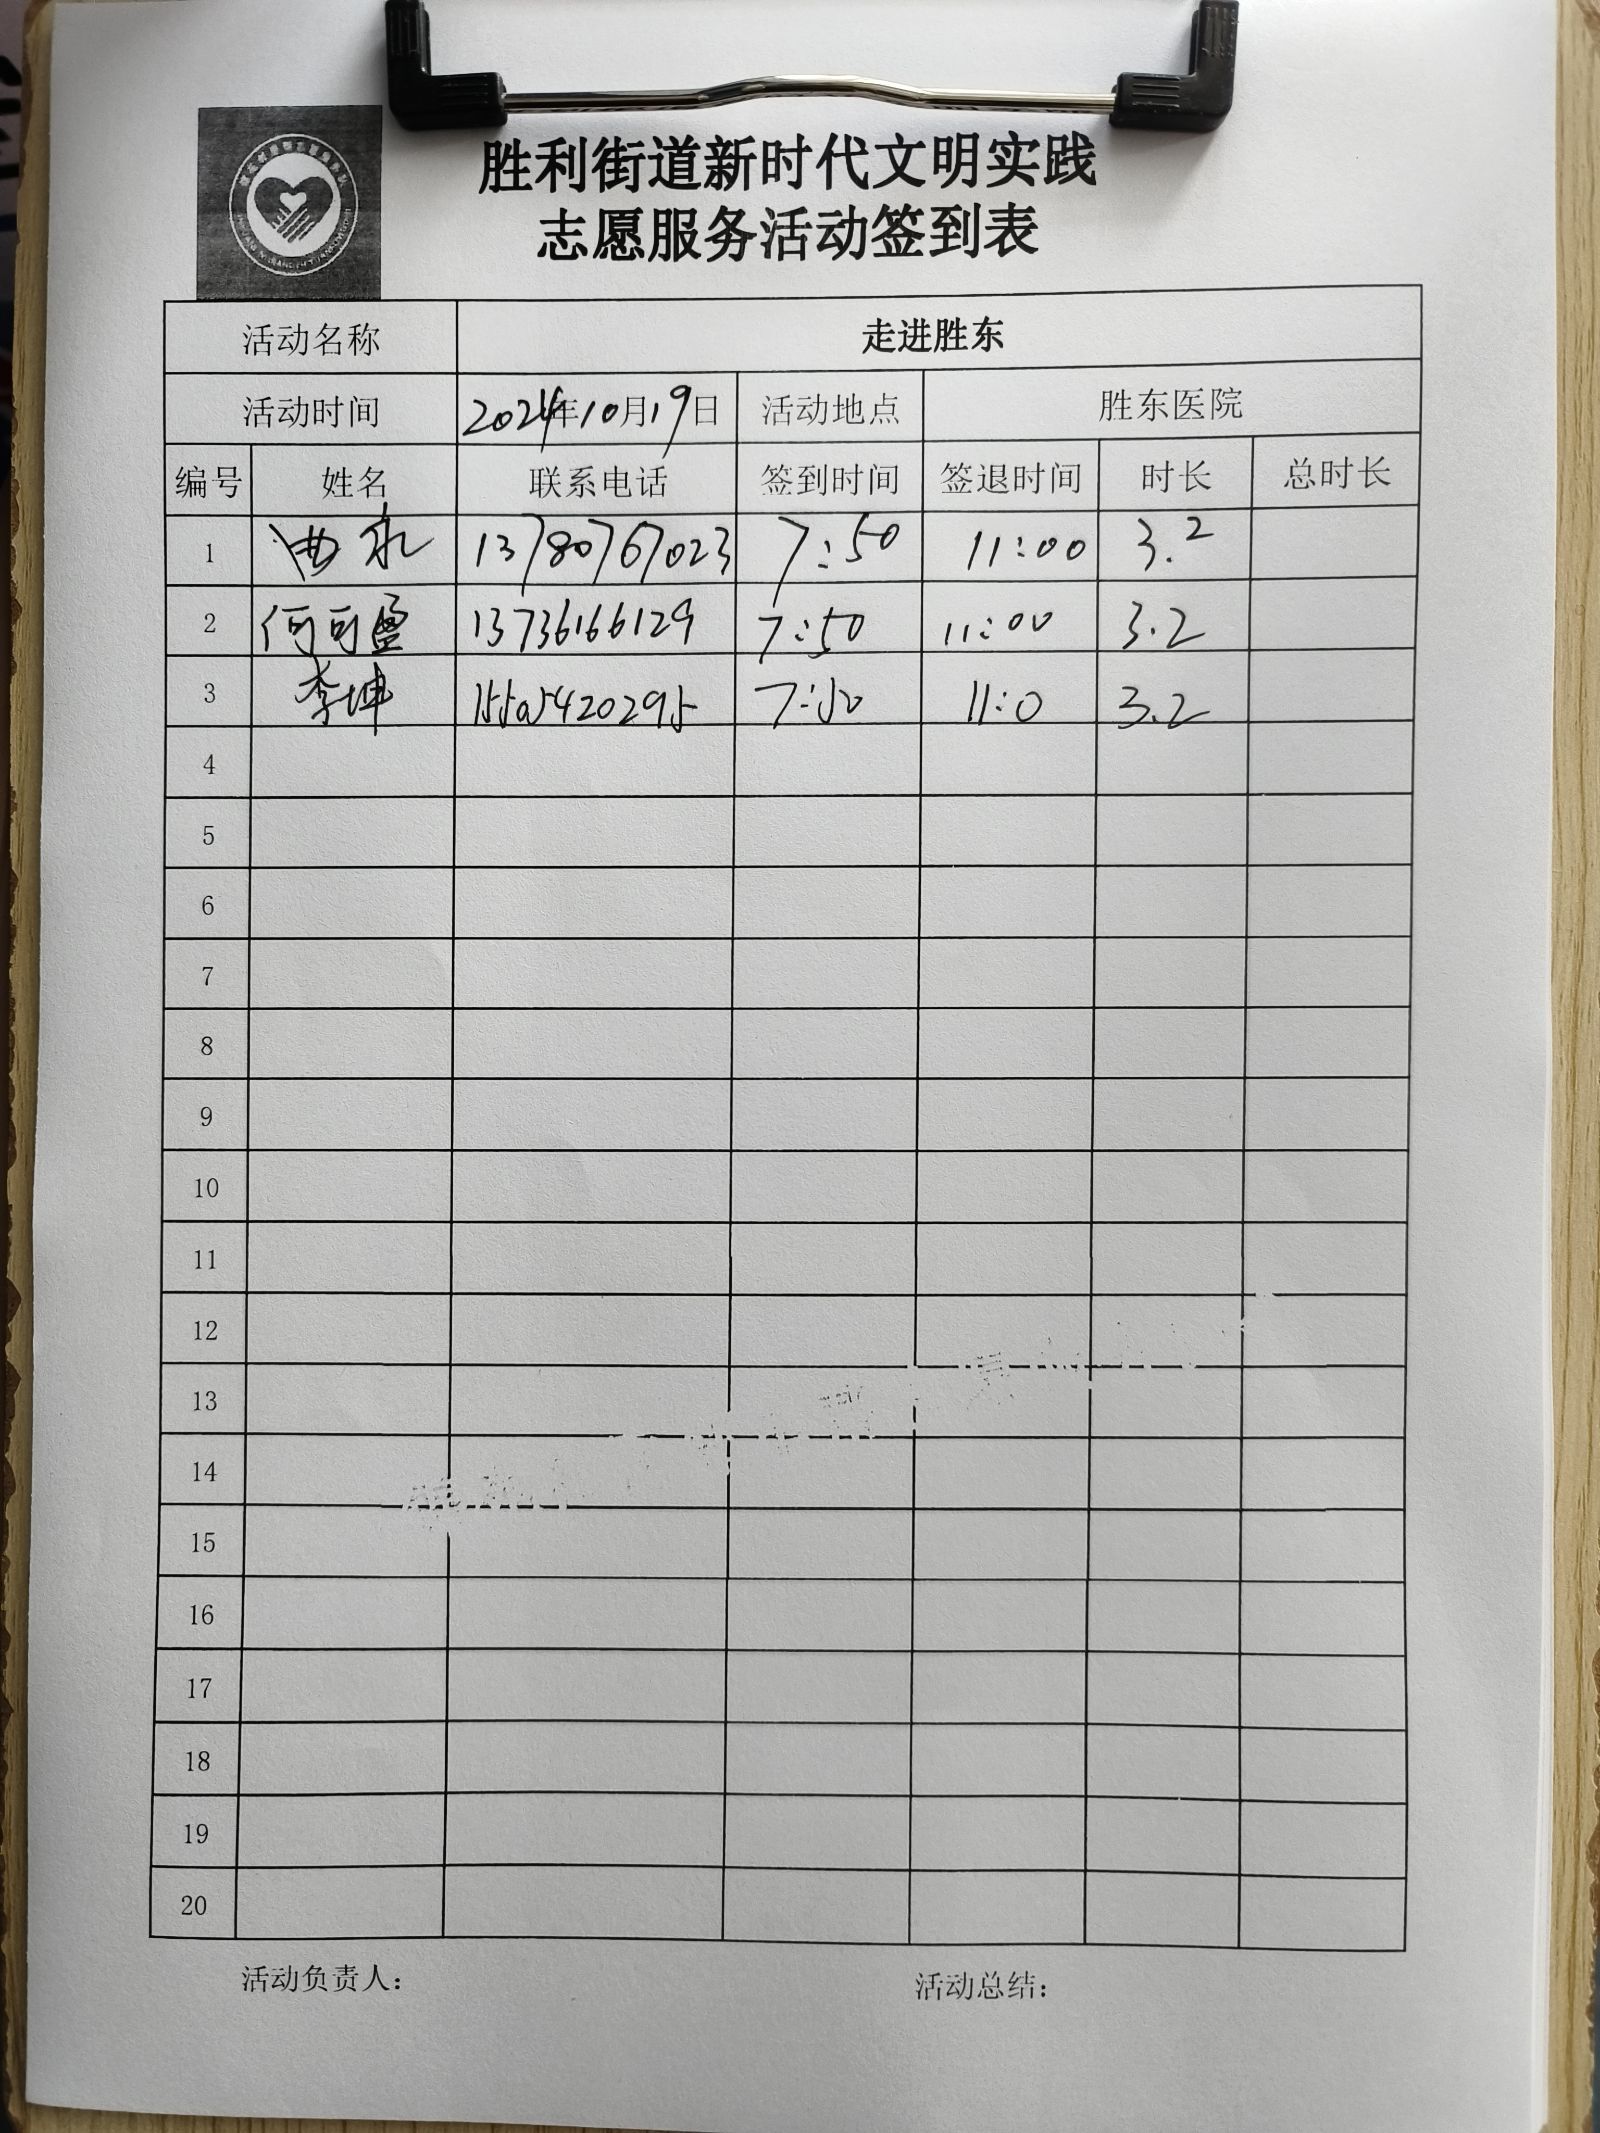 胜利街道新时代文明实践
志愿服务活动签到表
活动名称 走进胜东
活动时间 2024年10月19日 活动地点 胜东医院
编号 姓名 联系电话 签到时间 签退时间 时长 总时长
1 曲永 13780767023 7:50 11:00 3.2
2 何可盈 13736166129 7:50 11:00 3.2
3 李坤 15505420295 7:50 11:0 3.2
4
5
6
7
8
9
10
11
12
13
14
15
16
17
18
19
20
活动负责人: 活动总结: